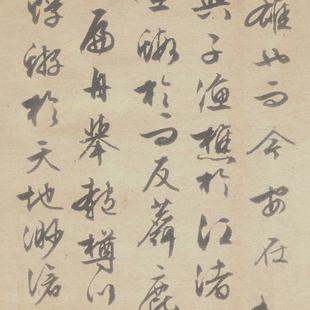 雄也而今安在
與子漁樵於江渚
鰕於而友麋鹿
扁舟舉匏樽以
蜉蝣於天地渺滄